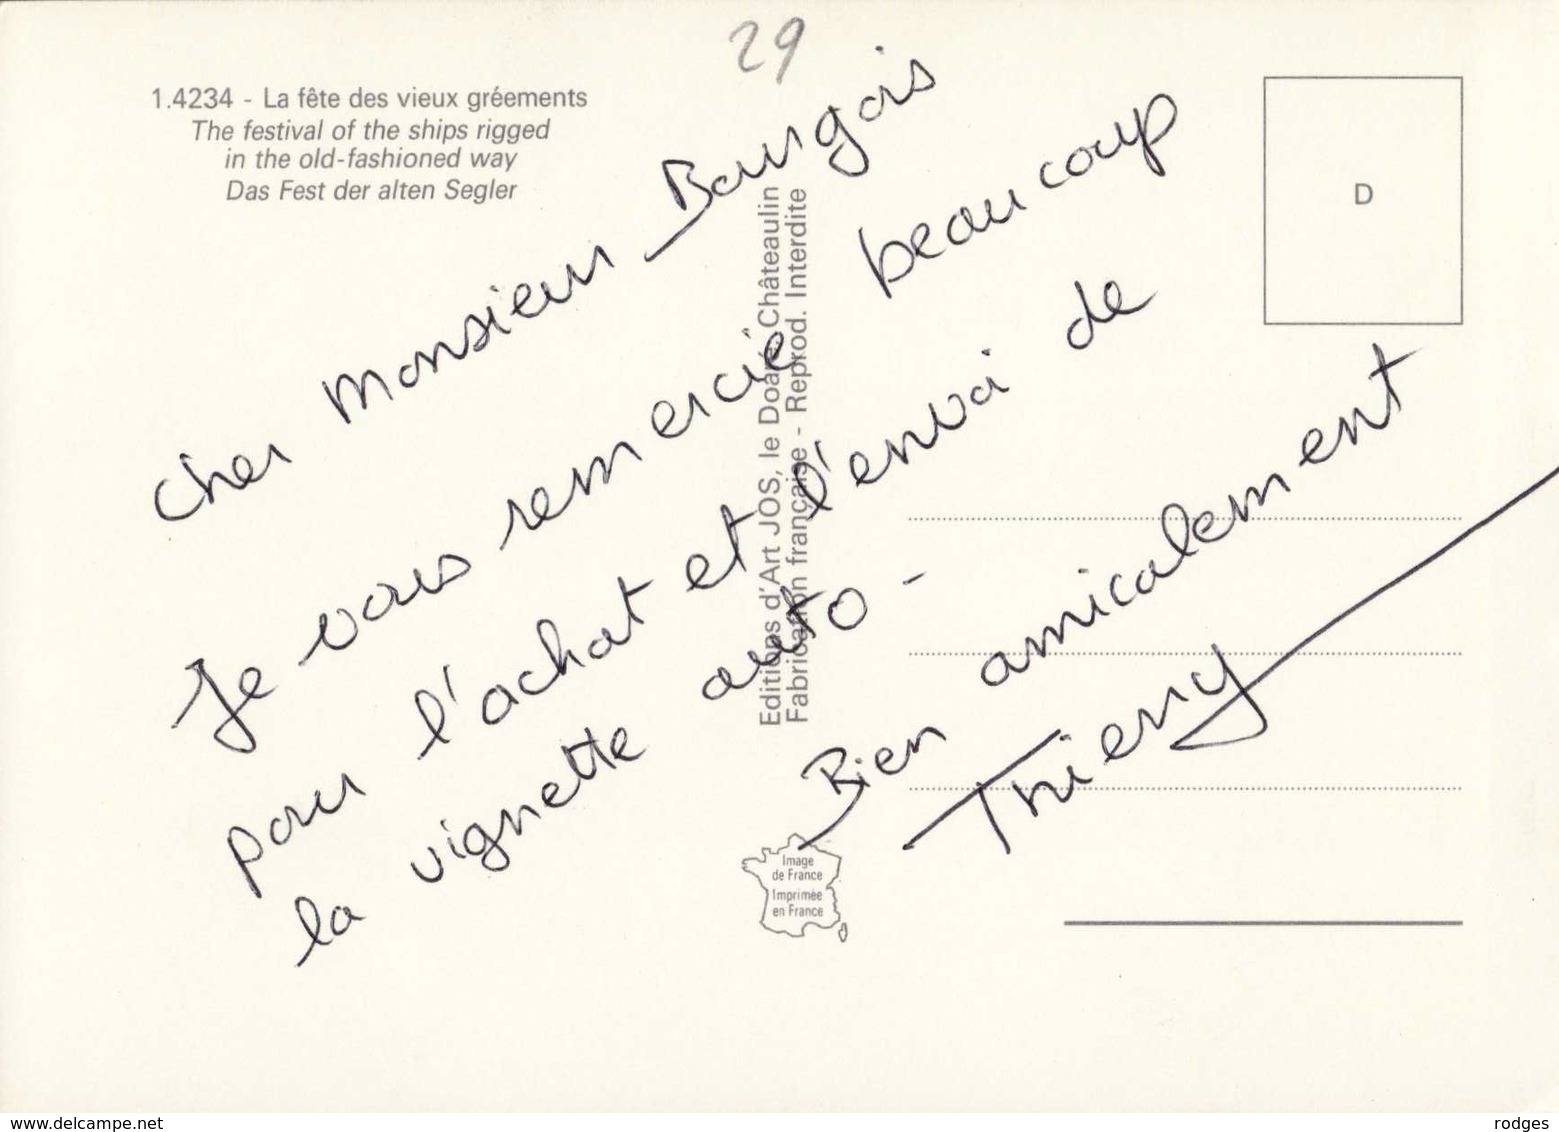 29
1.4234 - La fête des vieux gréements
The festival of the ships rigged
in the old-fashioned way
Das Fest der alten Segler
D
Cher Monsieur Bourgois
Je vous remercie beaucoup
pour l'achat et l'envoi de
la vignette auto -
Bien amicalement
Thierry
Editions d'Art JOS, le Doaré, Châteaulin
Fabrication française - Reprod. Interdite
Image
de France
Imprimée
en France
www.delcampe.net
rodges